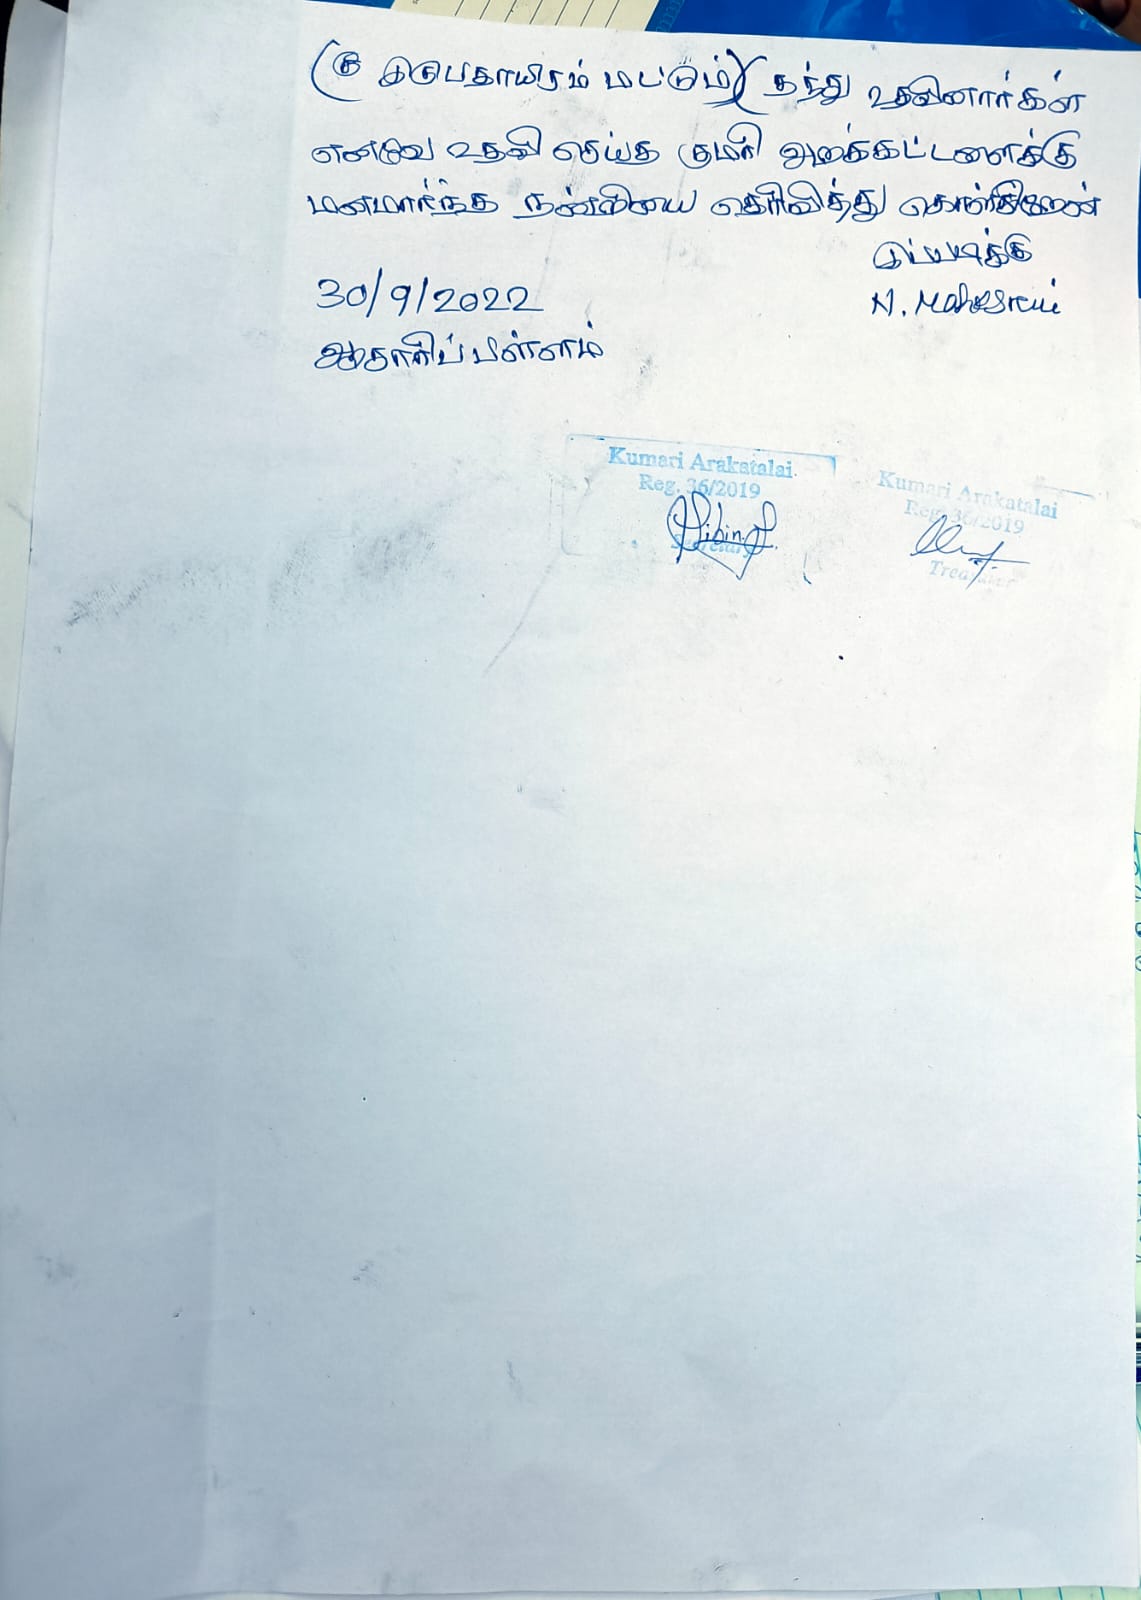 (ரூ இருபதாயிரம் மட்டும்) தந்து உதவினார்கள்
எனவே உதவி செய்த குமரி அறக்கட்டளைக்கு
மனமார்ந்த நன்றியை தெரிவித்து கொள்கிறேன்
இப்படிக்கு
30/9/2022
N.
ஆசாரிப்பள்ளம்
Kumari Arakatalai.
Reg. 36/2019
Secretary
Kumari Arakatalai
Reg. 36/2019
Treasurer